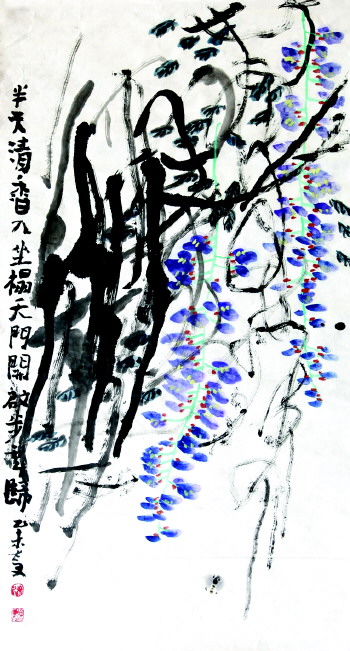 半天清香入坐榻天門開啟步歸
乙未